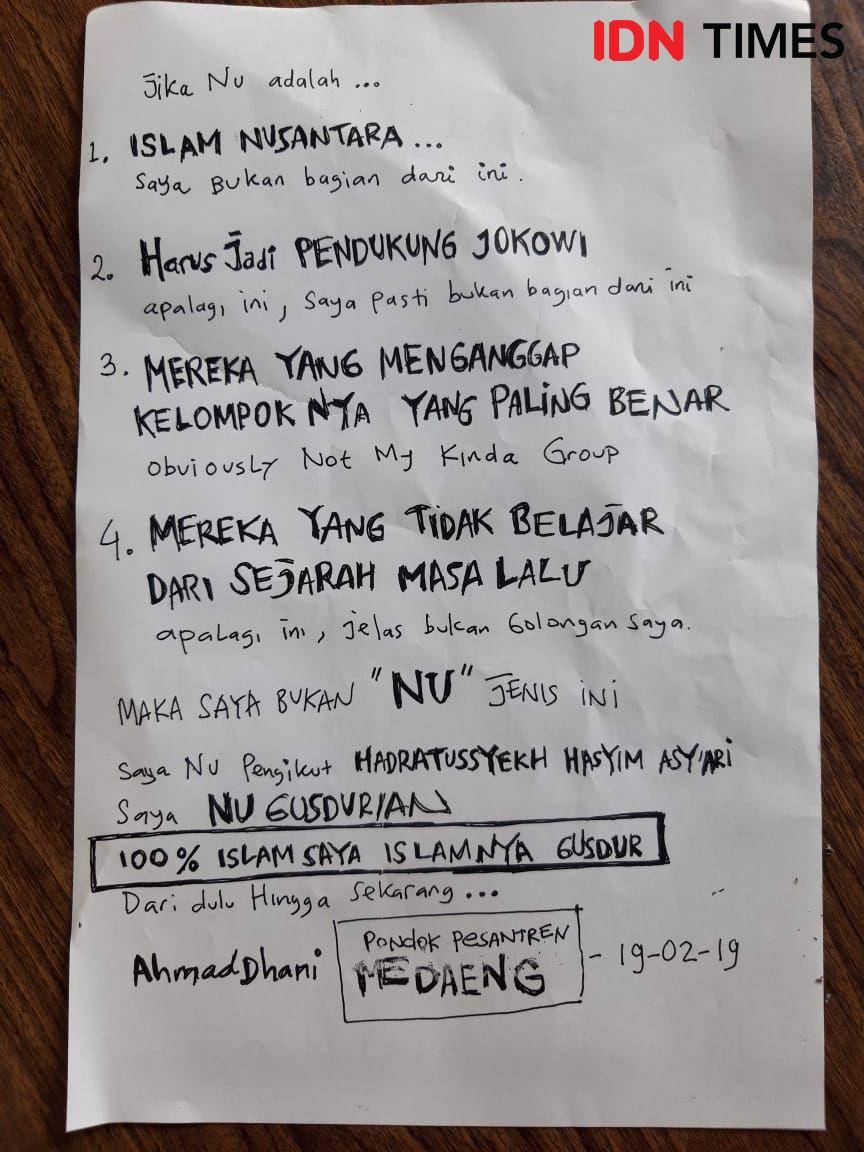 IDN TIMES
Jika NU adalah ...
1. ISLAM NUSANTARA ...
Saya BUKan bagian dari ini.
2. Harus Jadi PENDUKUNG JOKOWI
apalagi ini, Saya pasti bukan bagian dari ini
3. MEREKA YANG MENGANGGAP
KELOMPOK NYA YANG PALING BENAR
Obviously Not My Kinda Group
4. MEREKA YANG TIDAK BELAJAR
DARI SEJARAH MASA LALU
apalagi ini, jelas bukan Golongan Saya.
MAKA SAYA BUKAN "NU" JENIS INI
Saya NU Pengikut HADRATUSSYEKH HASYIM ASY'ARI
Saya NU GUSDURIAN
100% ISLAM SAYA ISLAMNYA GUSDUR
Dari dulu Hingga Sekarang ...
Ahmad Dhani PONDOK PESANTREN MEDAENG - 19-02-19